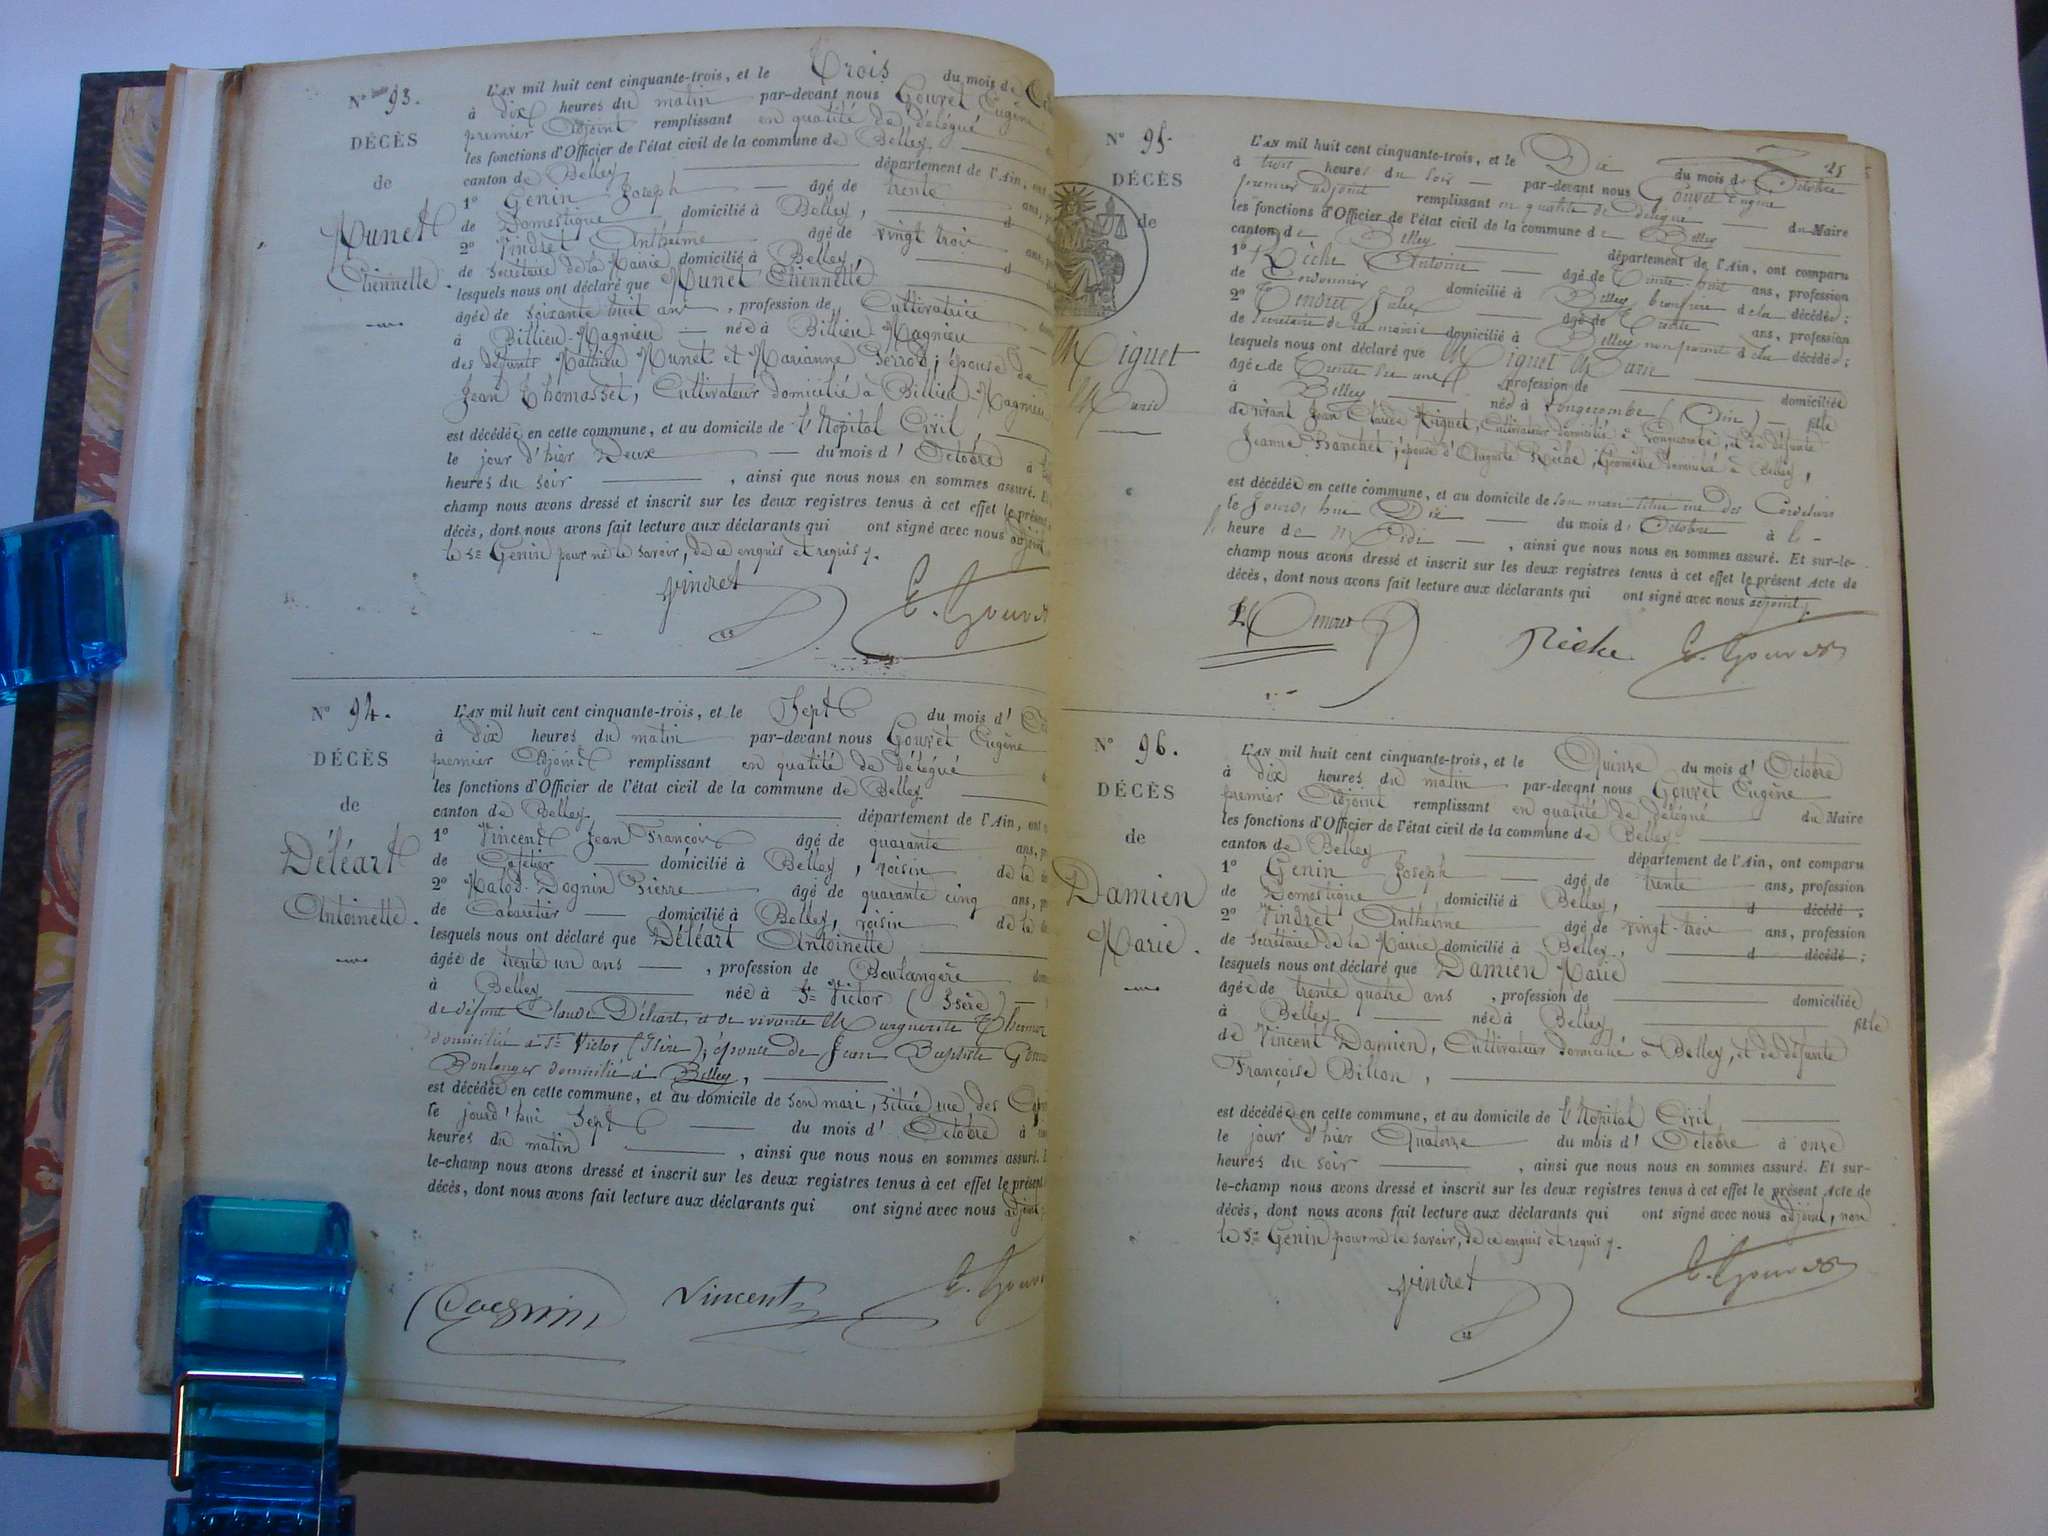 N° 93.
DÉCÈS
de
Munet
Etiennette.
L'AN mil huit cent cinquante-trois, et le Trois du mois de
à dix heures du matin par-devant nous Gouvet Eugène
premier Adjoint remplissant en qualité de délégué
les fonctions d'Officier de l'état civil de la commune de Belley,
canton de Belley département de l'Ain, ont
1° Genin Joseph âgé de trente ans,
de Domestique domicilié à Belley, d
2° Vindret Anthelme âgé de vingt trois ans,
de Secrétaire de la Mairie domicilié à Belley d
lesquels nous ont déclaré que Munet Etiennette
âgée de soixante huit ans, profession de Cultivatrice
à Billieu-Magnieu née à Billieu-Magnieu
des défunts Mathieu Munet et Marianne Perrod; épouse de
Jean Thomasset, Cultivateur domicilié à Billieu-Magnieu
est décédée en cette commune, et au domicile de l'Hôpital Civil,
le jour d'hier Deux du mois d'Octobre à
heures du soir, ainsi que nous nous en sommes assuré. Et
champ nous avons dressé et inscrit sur les deux registres tenus à cet effet le présent
décès, dont nous avons fait lecture aux déclarants qui ont signé avec nous adjoint
le sr Genin pour ne le savoir, de ce enquis et requis.
Vindret E. Gouvet
N° 94.
DÉCÈS
de
Déléart
Antoinette.
L'AN mil huit cent cinquante-trois, et le Sept du mois d'
à dix heures du matin par-devant nous Gouvet Eugène
premier Adjoint remplissant en qualité de délégué
les fonctions d'Officier de l'état civil de la commune de Belley
canton de Belley, département de l'Ain, ont
1° Vincent Jean François âgé de quarante ans,
de Cafetier domicilié à Belley, voisin de la
2° Dognin Pierre âgé de quarante cinq ans,
de Cabaretier domicilié à Belley, voisin de la
lesquels nous ont déclaré que Déléart Antoinette
âgée de trente un ans, profession de Boulangère
à Belley née à St Victor (Isère)
de défunt Claude Déléart, et de vivante Marguerite
domiciliée à St Victor (Isère); épouse de Jean Baptiste
Boulanger domicilié à Belley,
est décédée en cette commune, et au domicile de son mari, situé rue des
le jourd'hui Sept du mois d'Octobre à
heures du matin, ainsi que nous nous en sommes assuré.
le-champ nous avons dressé et inscrit sur les deux registres tenus à cet effet le présent
décès, dont nous avons fait lecture aux déclarants qui ont signé avec nous adjoint
Dognin Vincent E. Gouvet
25
N° 95.
DÉCÈS
de
Miguet
Marie
L'AN mil huit cent cinquante-trois, et le Dix du mois d'Octobre
à trois heures du soir par-devant nous Gouvet Eugène
premier adjoint remplissant en qualité de délégué du Maire
les fonctions d'Officier de l'état civil de la commune de Belley
canton de Belley département de l'Ain, ont comparu
1° Riche Antoine âgé de trente-huit ans, profession
de Cordonnier domicilié à Belley, beaufrère de la décédée;
2° Tendret Jules âgé de Trente ans, profession
de Secrétaire de la mairie domicilié à Belley non parent de la décédée;
lesquels nous ont déclaré que Miguet Marie
âgée de Trente six ans profession de domiciliée
à Belley née à Longecombe (Ain) fille
de vivant Jean Claude Miguet, Cultivateur domicilié à Longecombe, et de défunte
Jeanne Banchet; épouse d'Auguste Riche, Géomètre domicilié à Belley,
est décédée en cette commune, et au domicile de son mari situé rue des Cordeliers
le Jourd'hui Dix du mois d'Octobre à l'
heure de Midi, ainsi que nous nous en sommes assuré. Et sur-le-
champ nous avons dressé et inscrit sur les deux registres tenus à cet effet le présent Acte de
décès, dont nous avons fait lecture aux déclarants qui ont signé avec nous adjoint.
Riche E. Gouvet
N° 96.
DÉCÈS
de
Damien
Marie.
L'AN mil huit cent cinquante-trois, et le Quinze du mois d'Octobre
à dix heures du matin par-devant nous Gouvet Eugène
premier Adjoint remplissant en qualité de délégué du Maire
les fonctions d'Officier de l'état civil de la commune de Belley
canton de Belley département de l'Ain, ont comparu
1° Genin Joseph âgé de trente ans, profession
de Domestique domicilié à Belley, d décédé;
2° Vindret Anthelme âgé de vingt-trois ans, profession
de Secrétaire de la Mairie domicilié à Belley, d décédé;
lesquels nous ont déclaré que Damien Marie
âgée de trente quatre ans, profession de domiciliée
à Belley née à Belley, fille
de Vincent Damien, Cultivateur domicilié à Belley, et de défunte
Françoise Billion,
est décédée en cette commune, et au domicile de l'Hôpital Civil
le jour d'hier Quatorze du mois d'Octobre à onze
heures du soir, ainsi que nous nous en sommes assuré. Et sur-
le-champ nous avons dressé et inscrit sur les deux registres tenus à cet effet le présent Acte de
décès, dont nous avons fait lecture aux déclarants qui ont signé avec nous adjoint, non
le sr Genin pour ne le savoir, de ce enquis et requis.
Vindret E. Gouvet